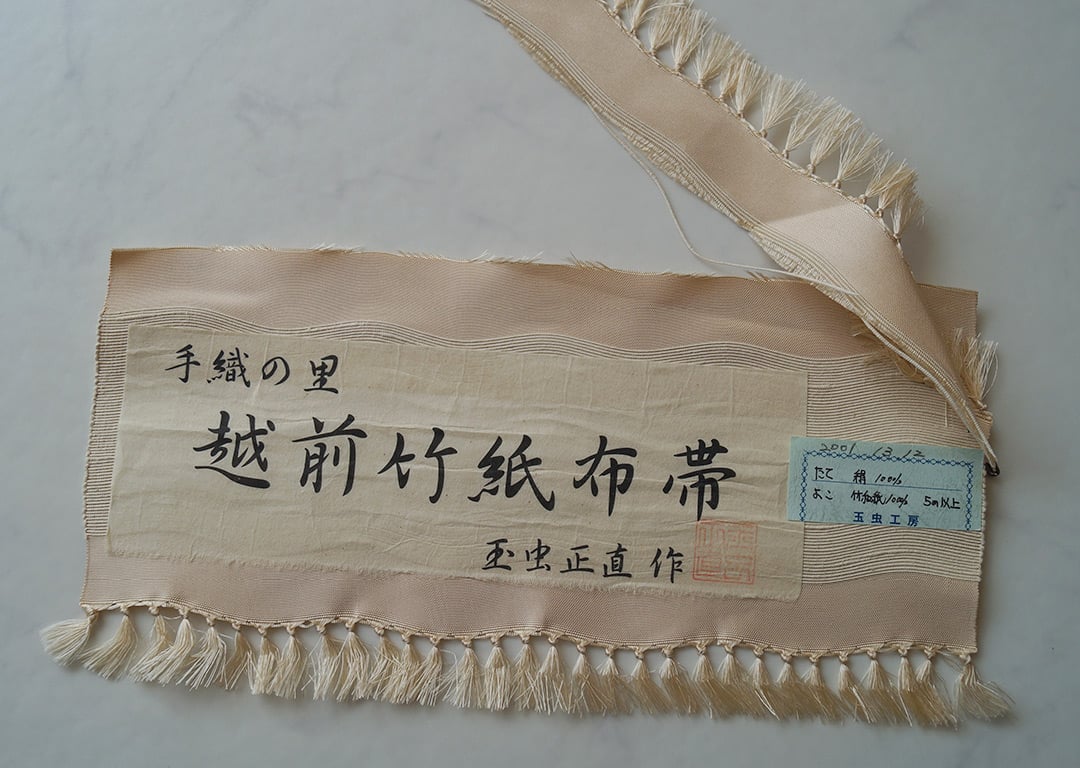 手織の里
越前竹紙布帯
玉虫正直 作
2001 3 12
たて 絹 100%
よこ 竹和紙100% 5m以上
玉虫工房